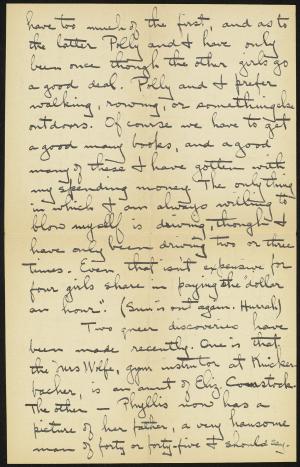 have too much of the first, and as to
the latter Polly and I have only
been once though the other girls go
a good deal. Polly and I prefer
walking, rowing, or something else
outdoors. Of course we have to get
a good many books, and a good
many of these I have gotten with
my spending money. The only thing
in which I am always willing to
blow myself is driving, though I
have only been driving two or three
times. Even that isn't expensive for
four girls share in paying the dollar
an hour". (Sun is out again. Hurrah)
Two queer discoveries have
been made recently. One is that
the Mrs Wolfe, gym instrutor at Knicker-
bacher, is an aunt of Eliz. Comstock.
The other — Phyllis now has a
picture of her father, a very hansome
man of forty or forty-five I should say.